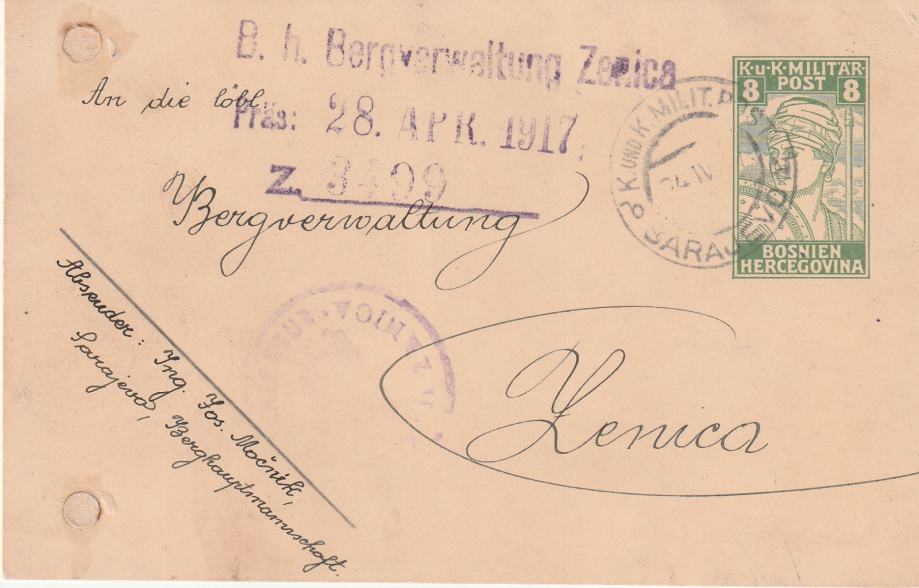 B. h. Bergverwaltung Zenica
Präs: 28. APR. 1917.
Z. 3409
An die löbl.
Bergverwaltung
Zenica
Absender: Ing. Jos. Močnik,
Sarajevo, Berghauptmannschaft.
K.u.K. MILITÄR-
POST
8 8
BOSNIEN
HERCEGOVINA
K. UND K. MILIT. POST
SARAJ